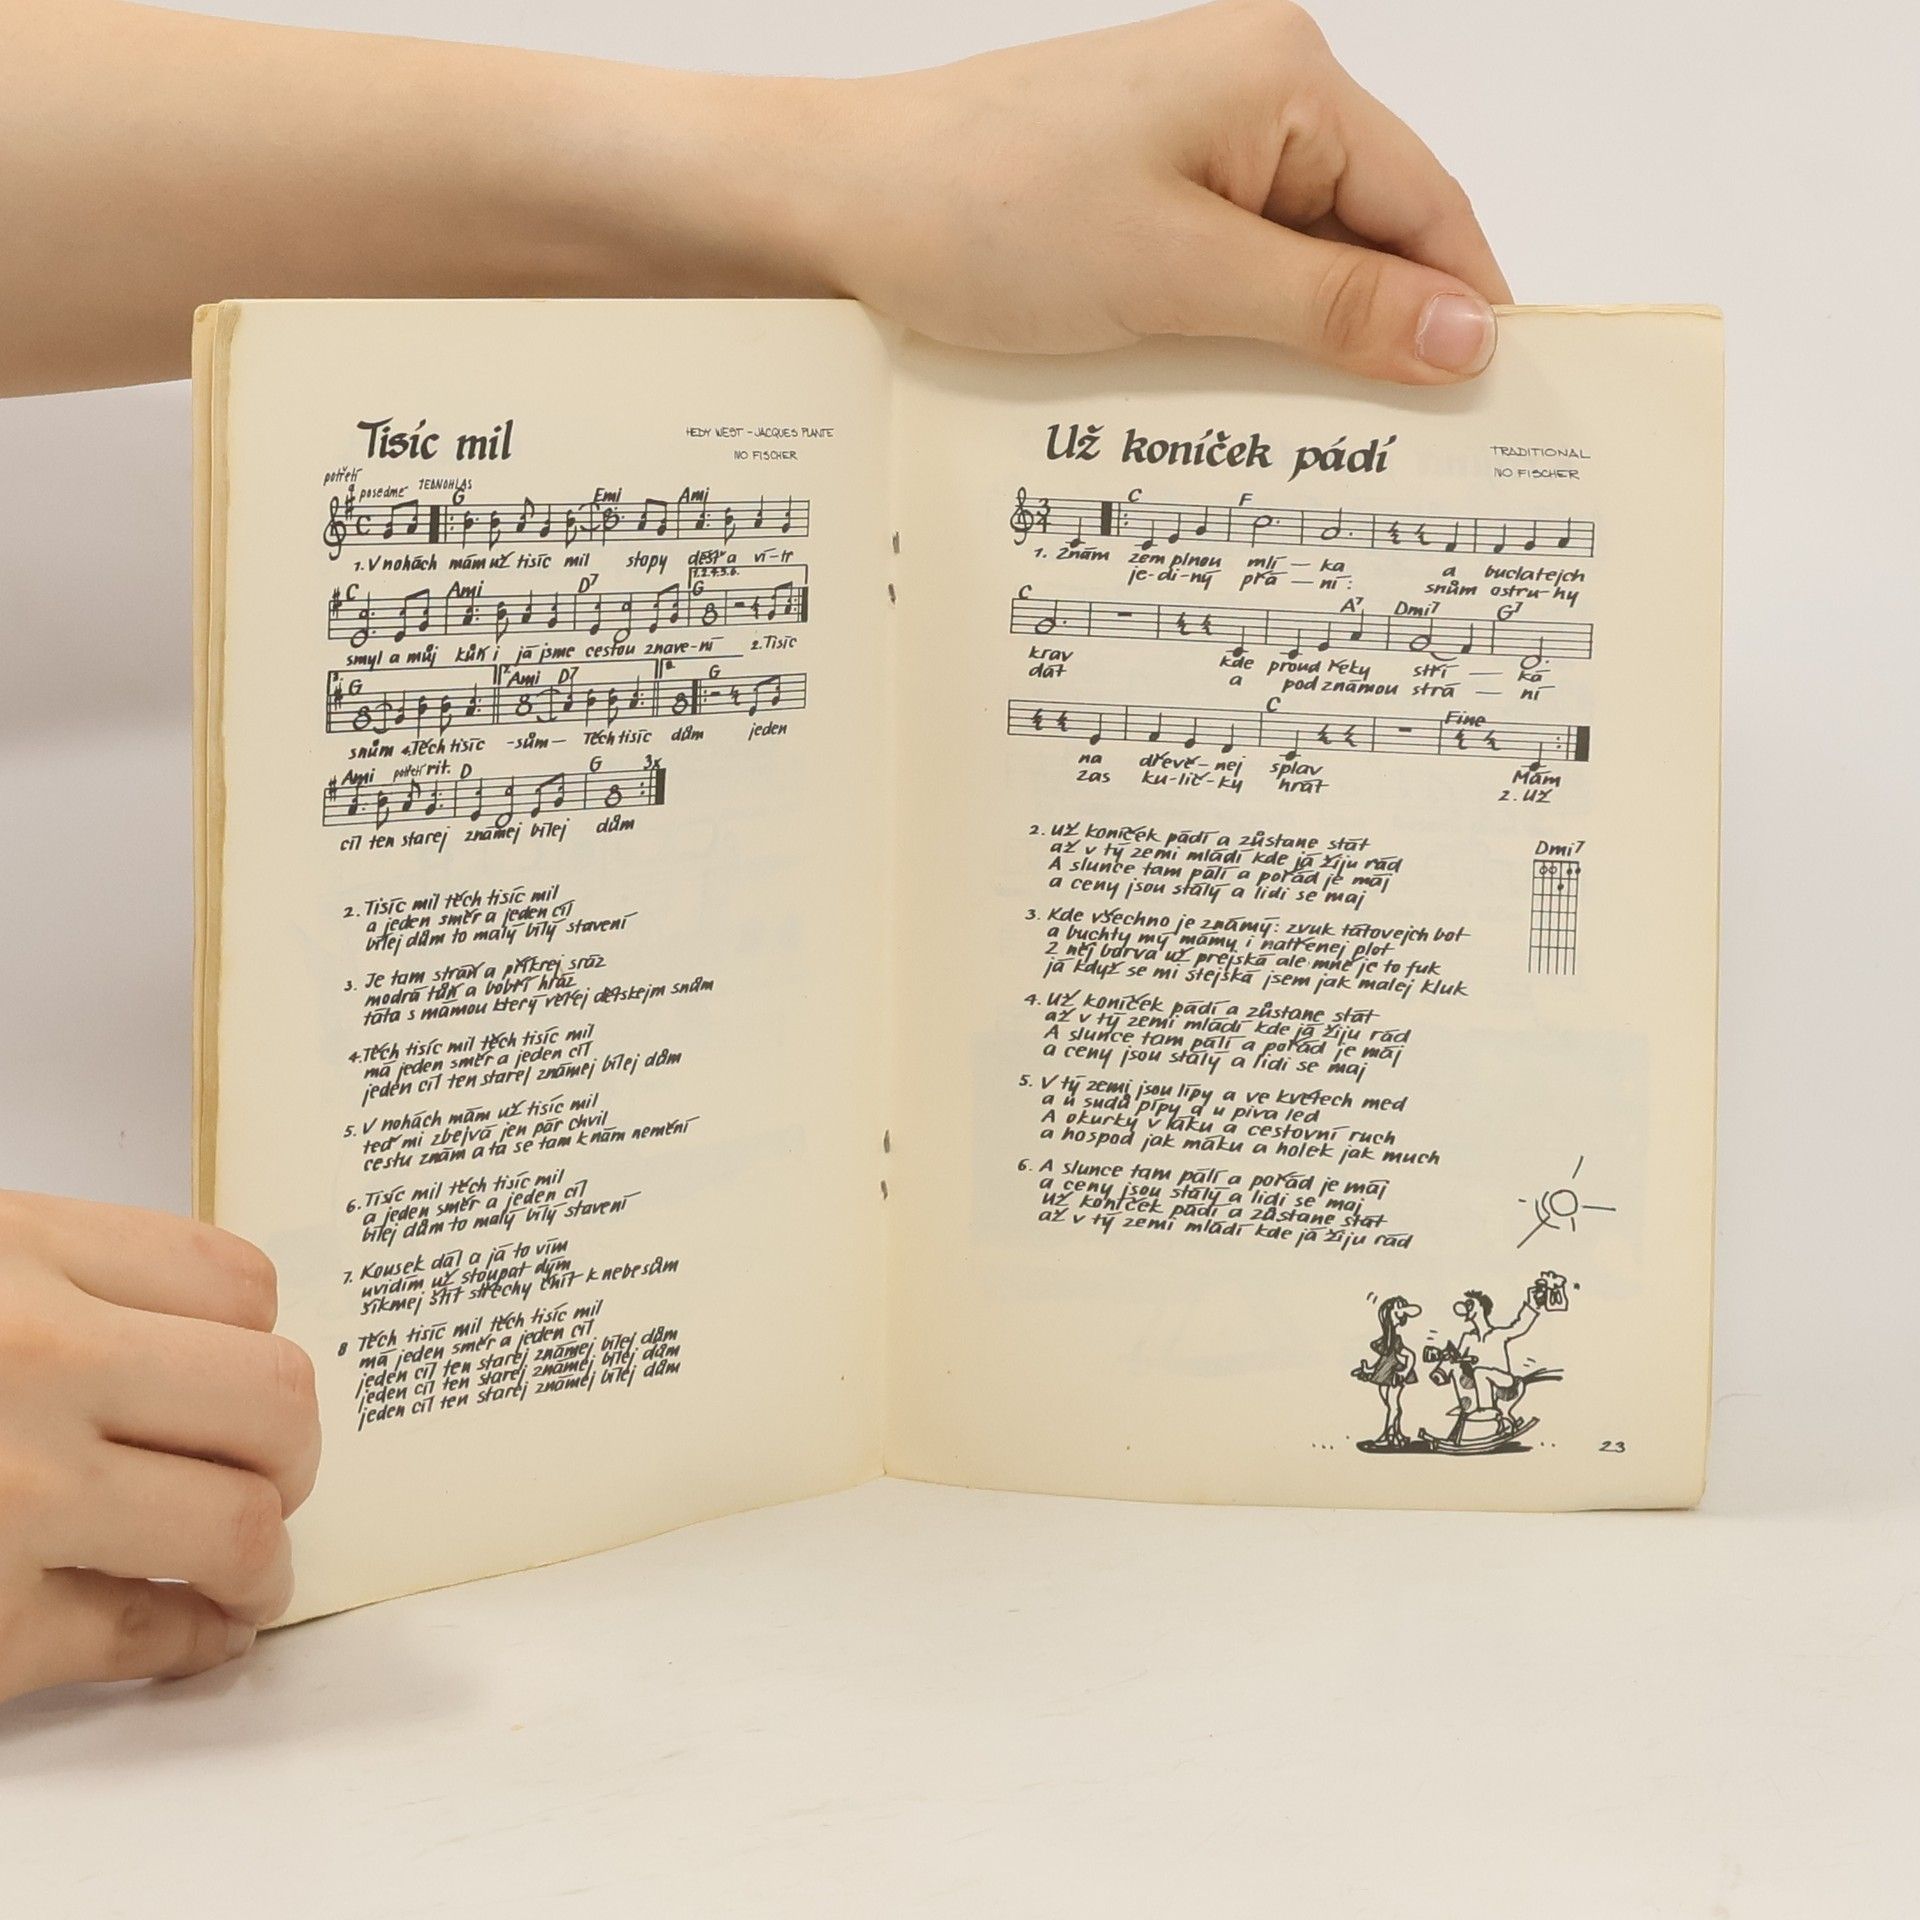 Tisíc mil
HEDY WEST - JACQUES PLANTE
IVO FISCHER
potřetí
posedmé JEDNOHLAS
G Emi Ami
1. V nohách mám už tisíc mil stopy déšť a ví-tr
1.2.4.5.6.
C Ami D7 G
smyl a můj kůň i já jsme cestou znave-ní 2. Tisíc
3. G 7. Ami D7 8. G
snům 4. Těch tisíc -sům- Těch tisíc dům jeden
Ami potřetí rit. D G 3x
cíl ten starej známej bílej dům
2. Tisíc mil těch tisíc mil
a jeden směr a jeden cíl
bílej dům to malý bílý stavení
3. Je tam stráň a příkrej sráz
modrá tůň a bobří hráz
táta s mámou který věřej dětskejm snům
4. Těch tisíc mil těch tisíc mil
má jeden směr a jeden cíl
jeden cíl ten starej známej bílej dům
5. V nohách mám už tisíc mil
teď mi zbejvá jen pár chvil
cestu znám a ta se tam k nám nemění
6. Tisíc mil těch tisíc mil
a jeden směr a jeden cíl
bílej dům to malý bílý stavení
7. Kousek dál a já to vím
uvidím už stoupat dým
šikmej štít střechy čnít k nebesům
8 Těch tisíc mil těch tisíc mil
má jeden směr a jeden cíl
jeden cíl ten starej známej bílej dům
jeden cíl ten starej známej bílej dům
jeden cíl ten starej známej bílej dům
Už koníček pádí
TRADITIONAL
IVO FISCHER
C F
1. Znám zem plnou mlí - ka a buclatejch
je-di-ný přá - ní: snům ostru-hy
C A7 Dmi7 G7
krav kde proud řeky stří - ká
dát a pod známou strá - ní
C Fine
na dřevě-nej splav Mám
zas ku-lič-ky hrát 2. Už
2. Už koníček pádí a zůstane stát
až v tý zemi mládí kde já žiju rád
A slunce tam pálí a pořád je máj
a ceny jsou stálý a lidi se maj
Dmi7
3. Kde všechno je známý: zvuk tátovejch bot
a buchty mý mámy i natřenej plot
Z něj barva už prejská ale mně je to fuk
já když se mi stejská jsem jak malej kluk
4. Už koníček pádí a zůstane stát
až v tý zemi mládí kde já žiju rád
A slunce tam pálí a pořád je máj
a ceny jsou stálý a lidi se maj
5. V tý zemi jsou lípy a ve květech med
a u sudů pípy a u piva led
A okurky v láku a cestovní ruch
a hospod jak máku a holek jak much
6. A slunce tam pálí a pořád je máj
a ceny jsou stálý a lidi se maj
Už koníček pádí a zůstane stát
až v tý zemi mládí kde já žiju rád
23